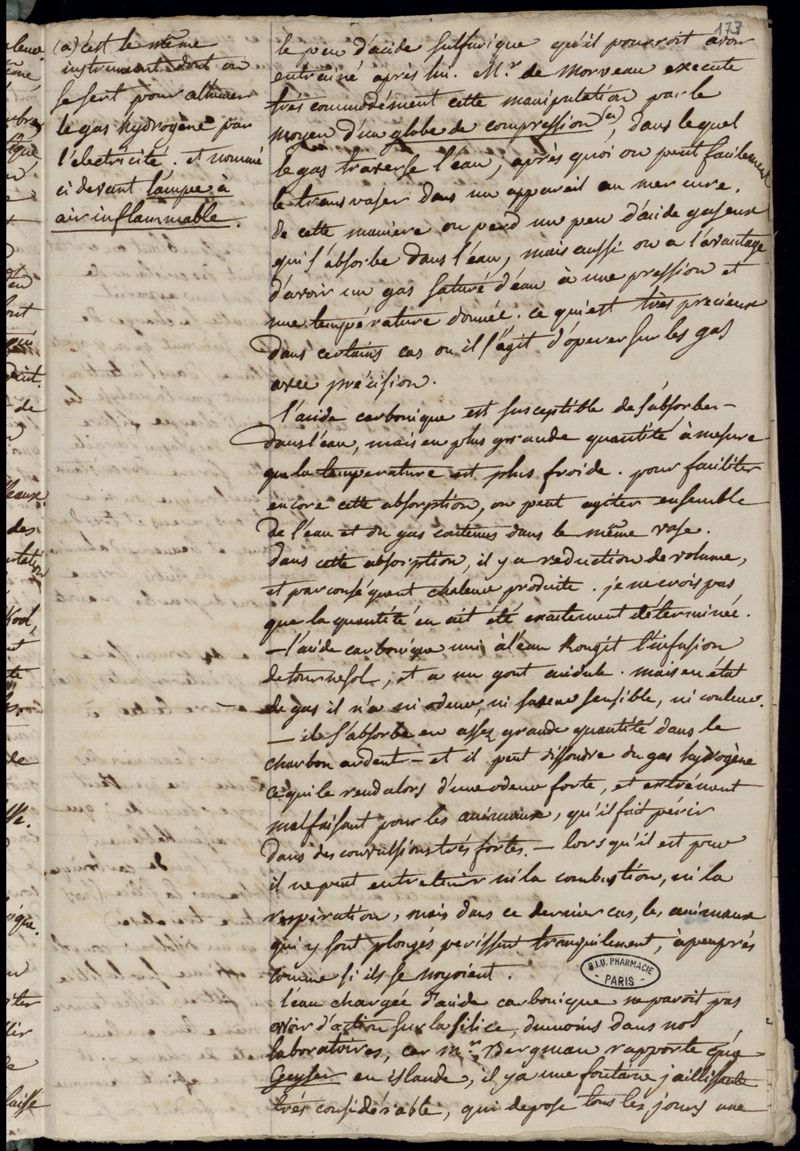 173
(a) c'est le même
instrument dont on
se sert pour allumer
le gas hydrogène par
l'électricité. et nommé
ci devant lampe à
air inflammable.
le peu d'acide sulfurique qu'il pourroit avoir
entrainé après lui. Mr. de Morveau execute
très commodément cette manipulation par le
moyen d'un globe de compression (a), dans lequel
le gas traverse l'eau, après quoi on peut facilement
le transvaser dans un appareil au mercure.
de cette maniere on perd un peu d'acide gaseux
qui s'absorbe dans l'eau, mais aussi on a l'avantage
d'avoir un gas saturé d'eau à une pression et
une température donnée. ce qui est très precieux
dans certains cas ou il s'agit d'operer sur les gas
avec précision.
l'acide carbonique est susceptible de s'absorber
dans l'eau, mais en plus grande quantité à mesure
que la temperature est plus froide. pour faciliter
encore cette absorption, on peut agiter ensemble
de l'eau et du gas contenus dans le même vase.
dans cette absorption, il y a reduction de volume,
et par conséquent chaleur produite. je ne crois pas
que la quantité en ait été exactement déterminée.
— l'acide carbonique uni à l'eau rougit l'infusion
de tournesol, et a un gout acidule. mais en état
de gas il n'a ni odeur, ni saveur sensible, ni couleur.
— il s'absorbe en assez grande quantité dans le
charbon ardent — et il peut dissoudre du gas hydrogène
ce qui le rend alors d'une odeur forte, et extrêment
malfaisant pour les animaux, qu'il fait périr
dans des convulsions très fortes. — lorsqu'il est pur
il ne peut entretenir ni la combustion, ni la
respiration, mais dans ce dernier cas, les animaux
qui y sont plongés perissent tranquilement, à peu près
comme si ils se noyoient.
B.I.U. PHARMACIE
PARIS
l'eau chargée d'acide carbonique ne paroit pas
avoir d'action sur la silice, du moins dans nos
laboratoires, car mr. Bergman rapporte qu'à
Geyser en islande, il y a une fontaine jaillissante
très considérable, qui depose tous les jours une